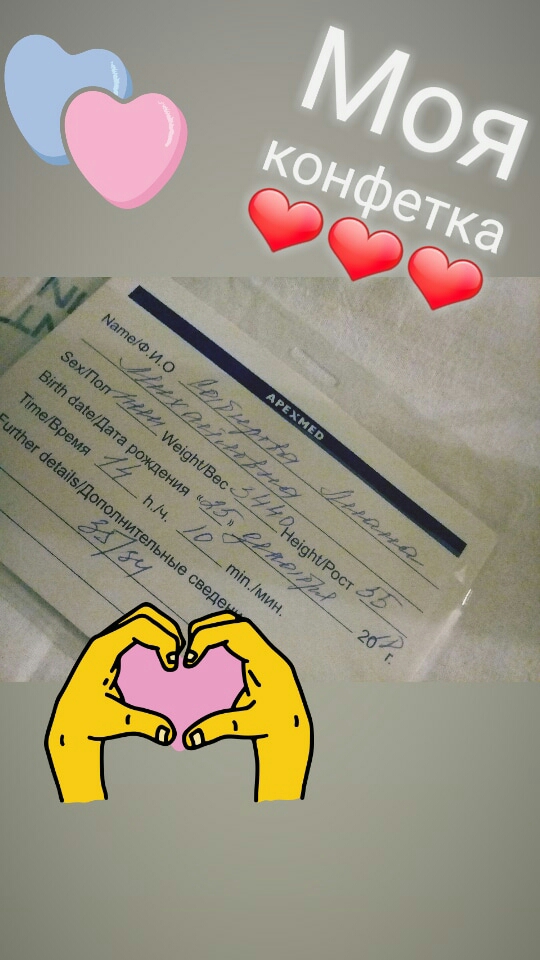 Моя
конфетка
APEXMED
Name/Ф.И.О
Михайловна
Sex/Пол жен Weight/Вес 3440 Height/Рост 55
Birth date/Дата рождения «25» декабря 20 г.
Time/Время 14 h./ч. 10 min./мин.
Further details/Дополнительные сведени
35/34